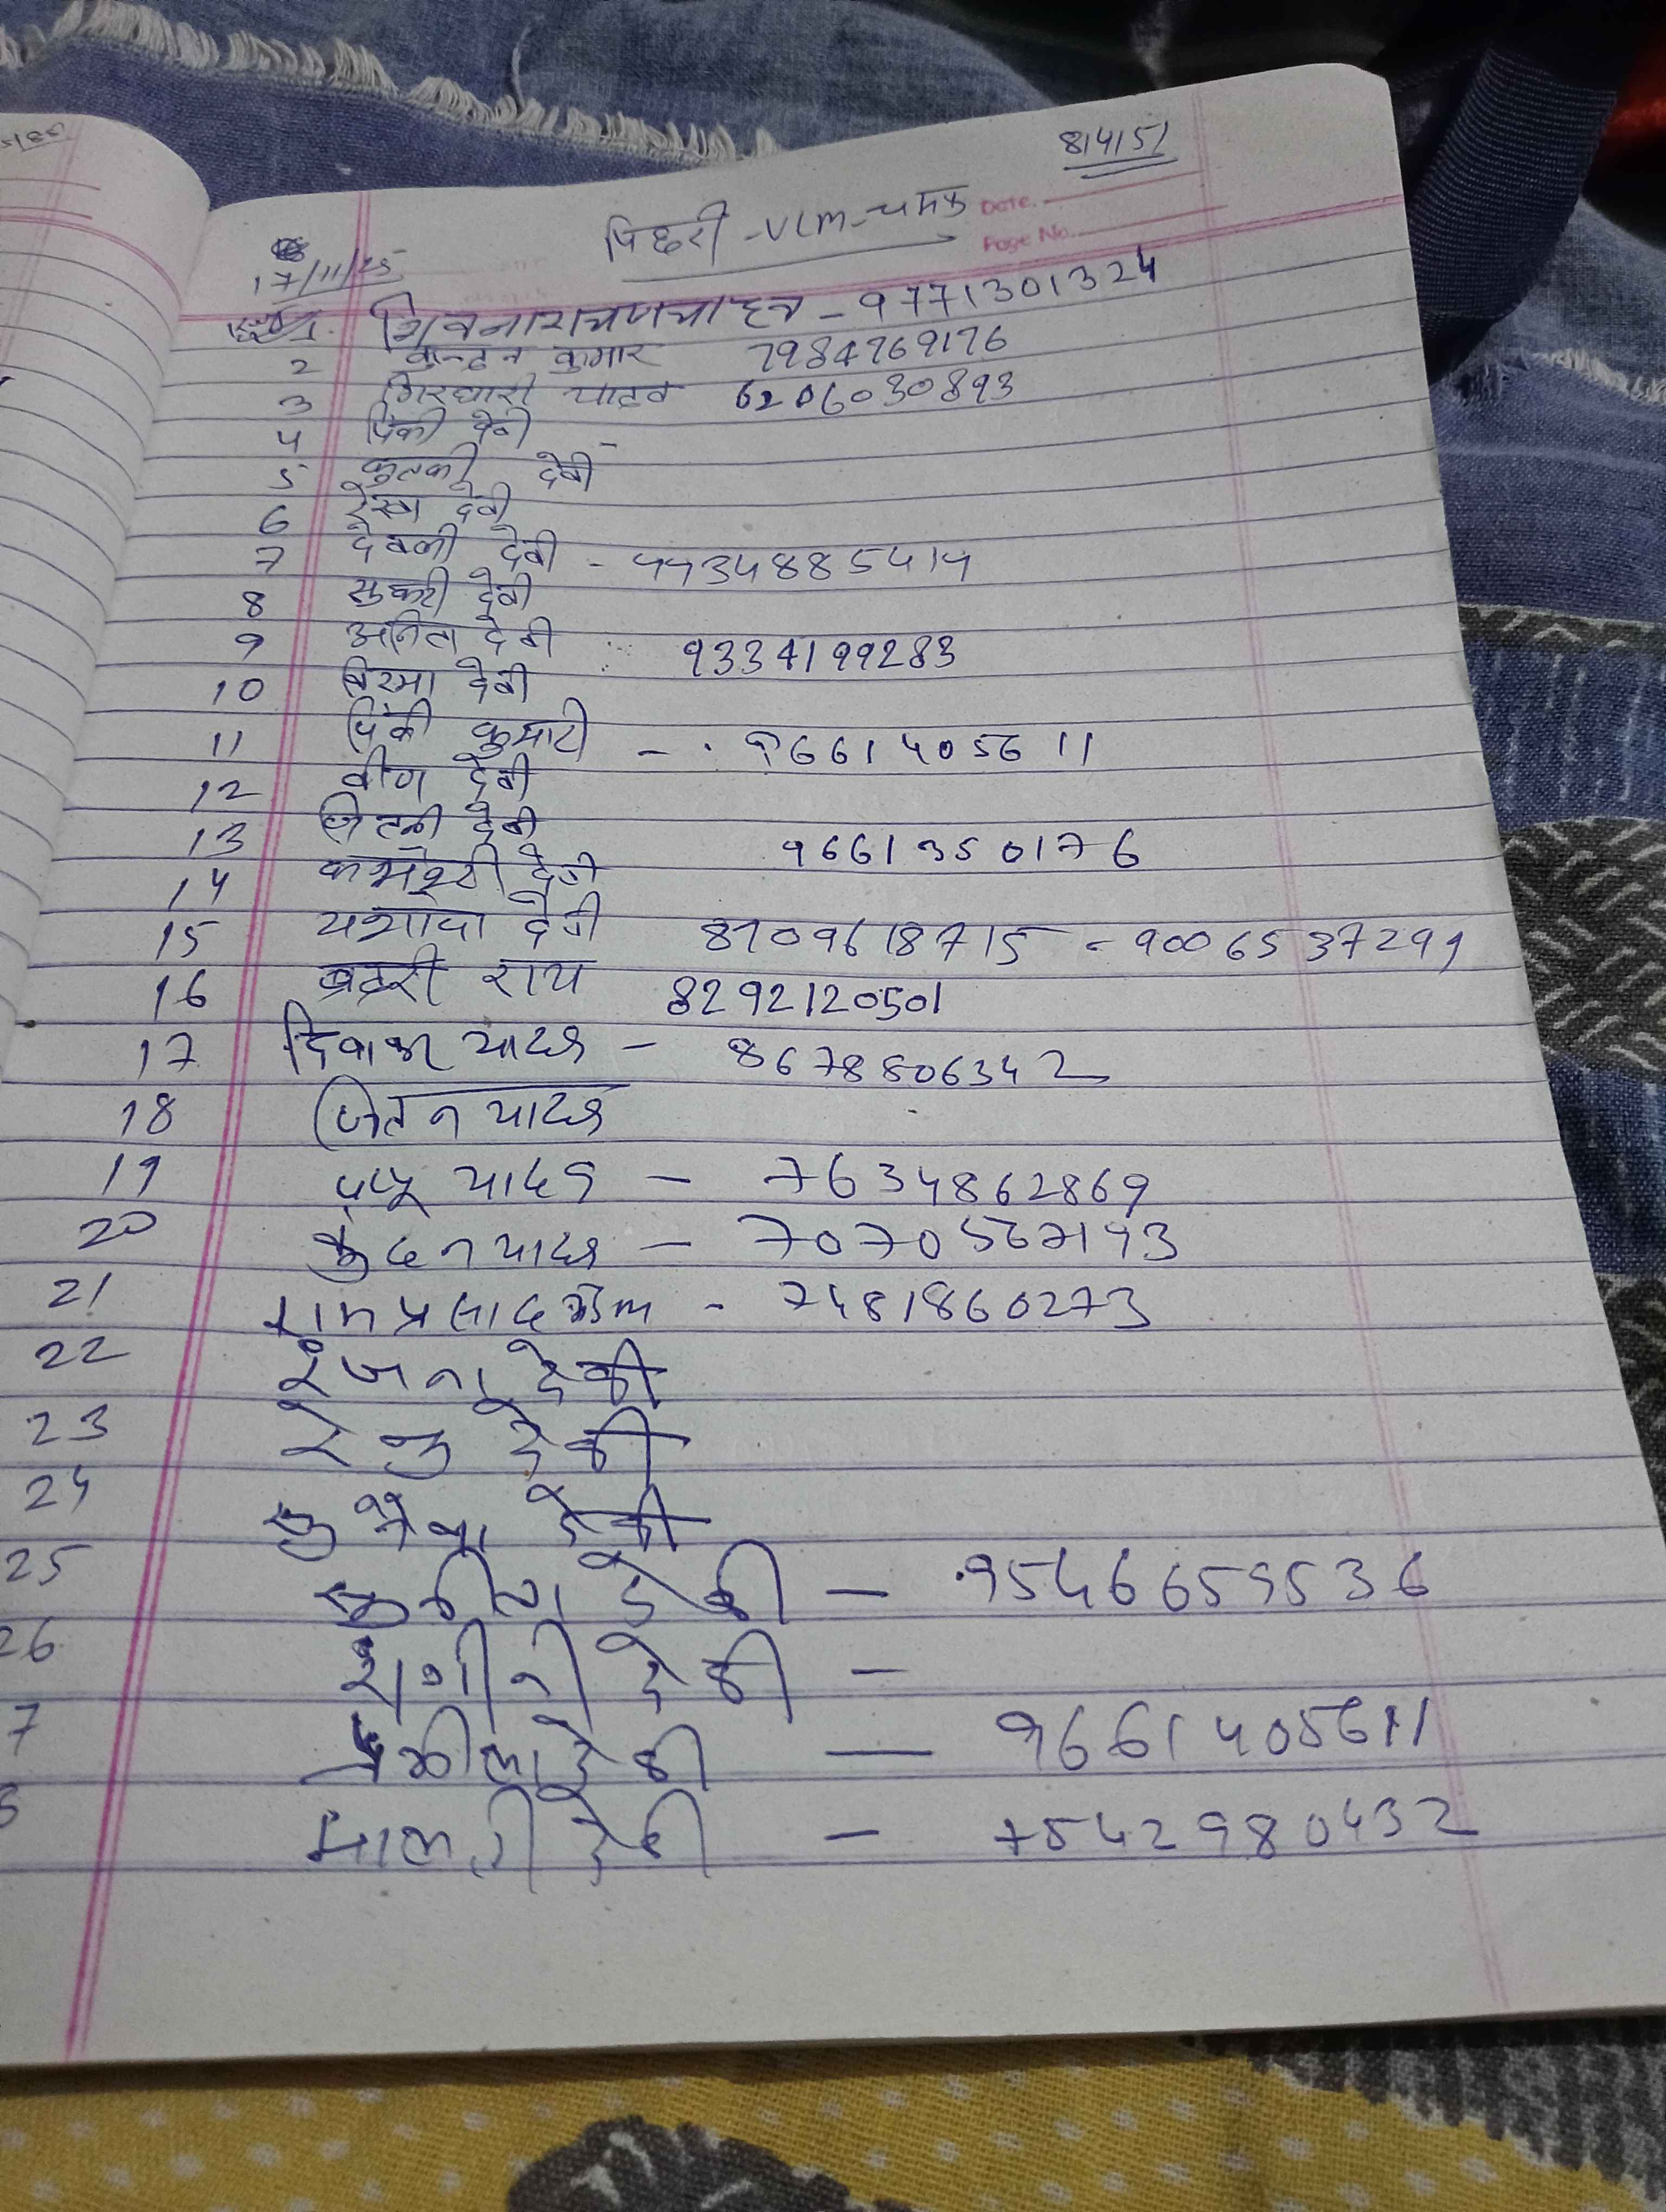 814151
पिछरी - VLM - चमक
Date.
Page No.
17/11/25
1. शिवनारायण यादव - 9771301324
2 कुन्दन कुमार 7984769176
3 गिरधारी यादव 6206030893
4 पिंकी देवी
5 देवी
6 रेखा देवी
7 देवकी देवी -
8 सुकरी देवी
9 अनिता देवी 9334199283
10 विरमा देवी
11 पिंकी कुमारी - 9661405611
12 वीणा देवी
13 देवी 9661350176
14 देवी
15 यशोदा देवी 8709618715 - 9006537299
16 बद्री राय 8292120501
17 दिवाकर यादव - 8678806342
18 जितन यादव
19 पप्पू यादव - 7634862869
20 कुंदन यादव -
21 रामप्रसाद - 7481860273
22 रंजना देवी
23 रेनु देवी
24 देवी
25 देवी - 9546659536
26 रागीनी देवी -
7 देवी - 9661405611
8 मालती देवी - 7542980432